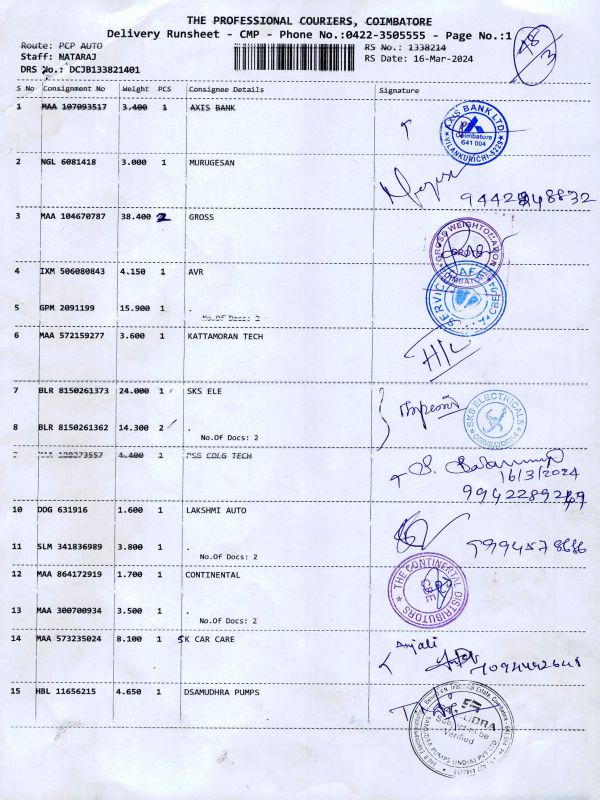 THE PROFESSIONAL COURIERS, COIMBATORE
Delivery Runsheet - CMP - Phone No.:0422-3505555 - Page No.:1
Route: PCP AUTO RS No.: 1338214
Staff: NATARAJ RS Date: 16-Mar-2024
DRS No.: DCJB133821401
S No Consignment No Weight PCS Consignee Details Signature
1 MAA 107093517 3.400 1 AXIS BANK
AXIS BANK LTD.
Coimbatore
641 004
2 NGL 6081418 3.000 1 MURUGESAN
3 MAA 104670787 38.400 2 GROSS
4 IXM 506080843 4.150 1 AVR
5 GPM 2091199 15.900 1 .
No.Of Docs: 2
6 MAA 572159277 3.600 1 KATTAMORAN TECH
7 BLR 8150261373 24.000 1 SKS ELE
SKS ELECTRICALS
COIMBATORE
8 BLR 8150261362 14.300 2 .
No.Of Docs: 2
4.400 1 PSG COLG TECH
16/3/2024
10 DDG 631916 1.600 1 LAKSHMI AUTO
99945 78686
11 SLM 341836989 3.800 1 .
No.Of Docs: 2
12 MAA 864172919 1.700 1 CONTINENTAL
THE CONTINENTAL DISTRIBUTORS
CBE
13 MAA 300700934 3.500 1 .
No.Of Docs: 2
14 MAA 573235024 8.100 1 SK CAR CARE
Anjali
15 HBL 11656215 4.650 1 DSAMUDHRA PUMPS
Verified